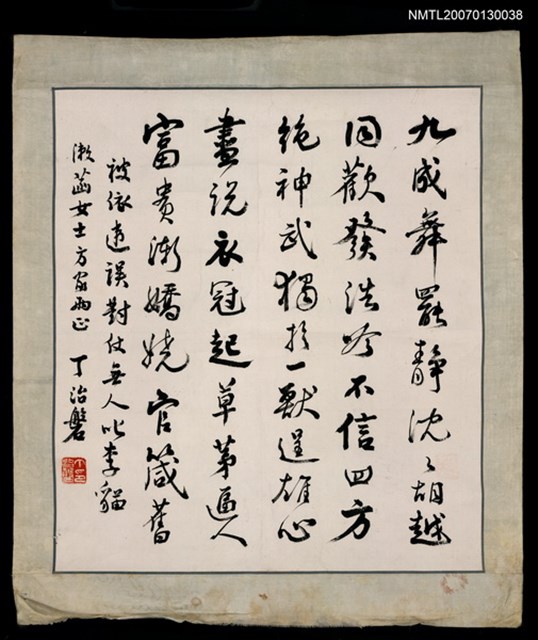 NMTL20070130038
九成舞罷靜沈沈胡越
同歡發浩吟不信四方
絶神武獨於一獸逞雄心
盡說衣冠起草茅逼人
富貴漸嬌嬈官箴舊
被依違誤對仗無人叱李貓
漱菡女士方家兩正 丁治磐